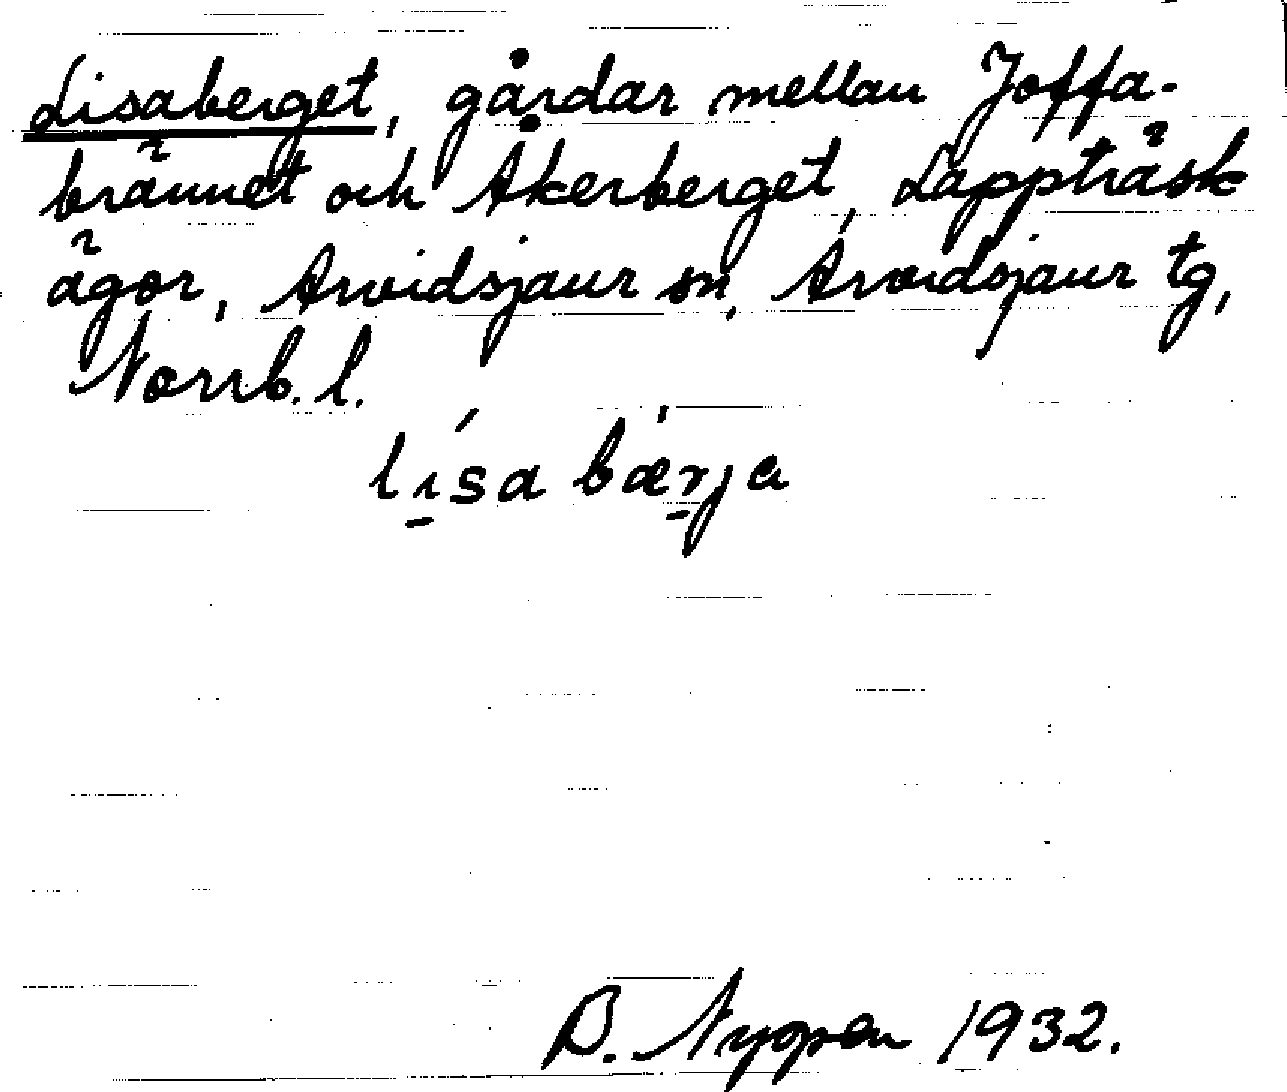 Lisaberget, gårdar mellan Joffa-
brännet och Åkerberget, Lappträsk
ägor, Arvidsjaur sn, Arvidsjaur tg,
Norrb. l.
lísa bǽrja
B. Nyopen 1932.